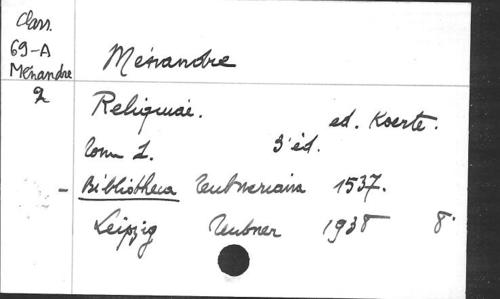 Class.
69-A
Ménandre
2
Ménandre
Reliquiae. ed. Koerte.
Tom 1. 3ᵉ éd.
- Bibliotheca Teubneriana 1537.
Leipzig Teubner 1938 8.